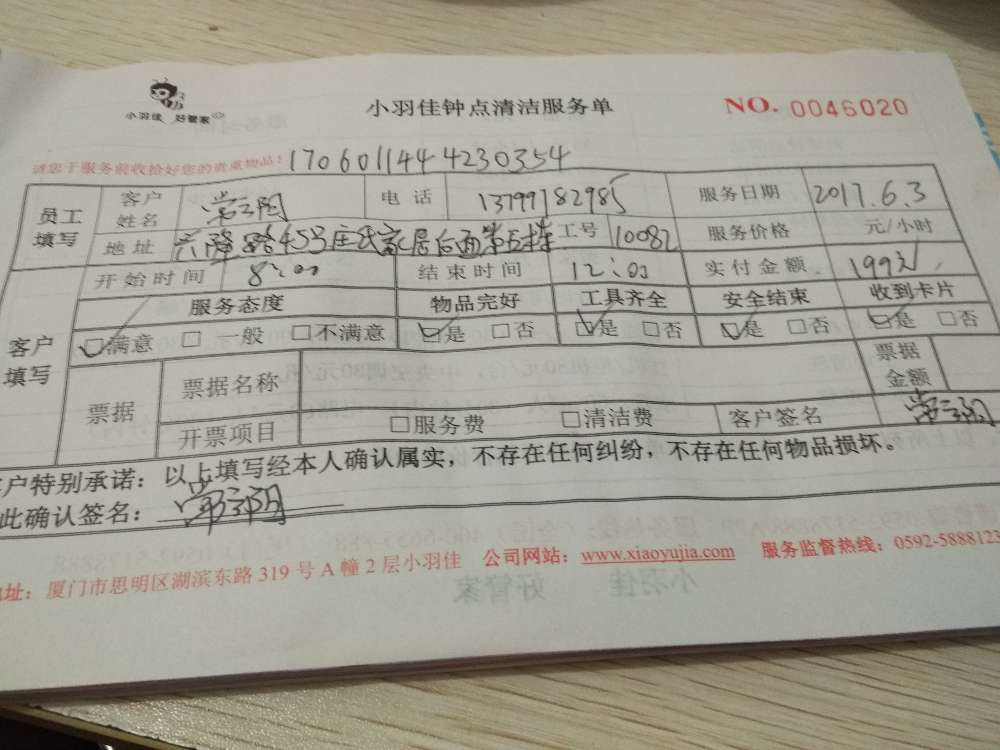 小羽佳 好管家
小羽佳钟点清洁服务单
NO. 0046020
请您于服务前收拾好您的贵重物品: 1706011444230354
员工填写 客户姓名 电话 13799182985 服务日期 2017.6.3
地址 工号 10082 服务价格 元/小时
开始时间 8:00 结束时间 12:00 实付金额 199元
服务态度 物品完好 工具齐全 安全结束 收到卡片
客户填写 ☑满意 □一般 □不满意 ☑是 □否 ☑是 □否 ☑是 □否 ☑是 □否
票据 票据名称 票据金额
开票项目 □服务费 □清洁费 客户签名
户特别承诺: 以上填写经本人确认属实，不存在任何纠纷，不存在任何物品损坏。
此确认签名:
址: 厦门市思明区湖滨东路 319 号 A 幢 2 层小羽佳 公司网站: www.xiaoyujia.com 服务监督热线: 0592-5888123